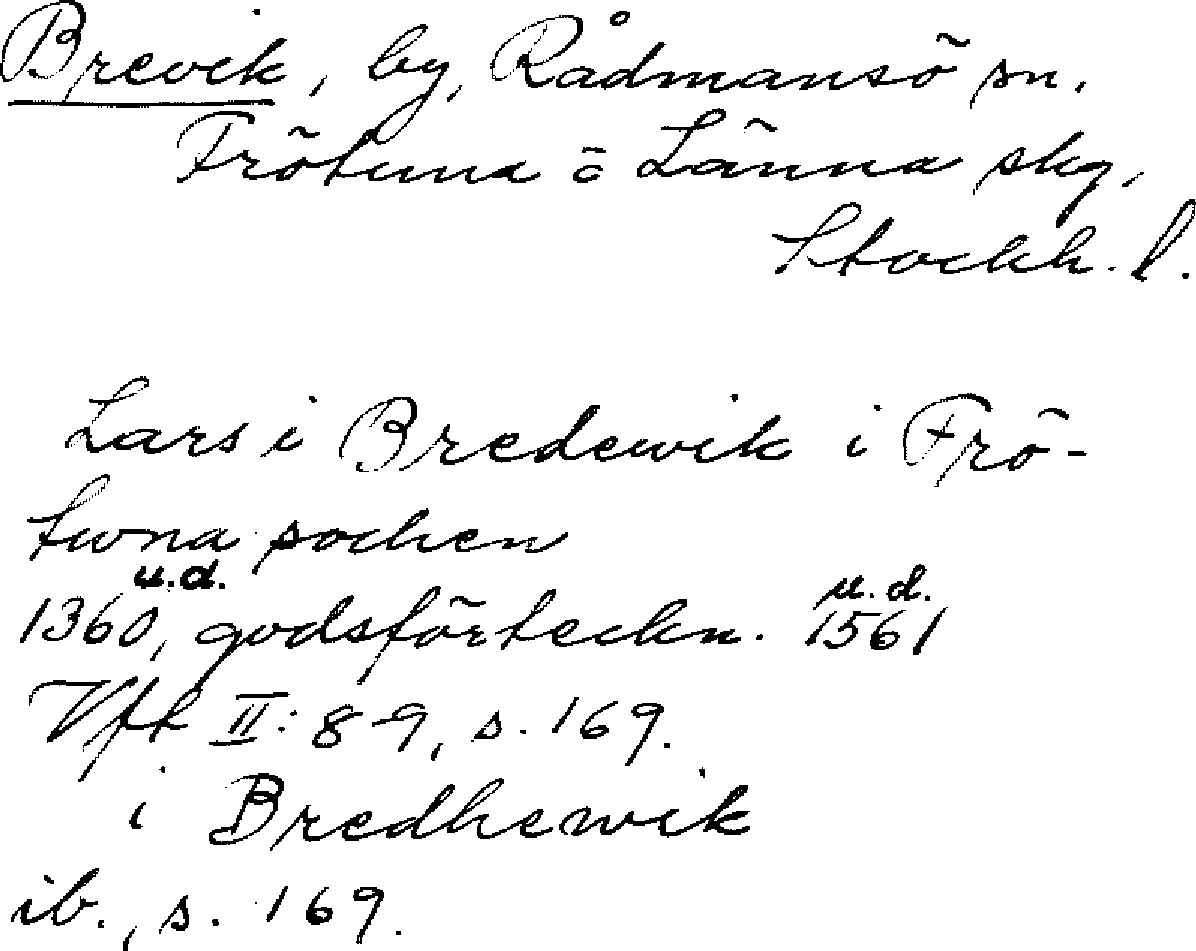 Brevik, by, Rådmansö sn,
Frötuna o Länna skg,
Stockh. l.
Lars i Bredewik i Frö-
twna sochen
u.d. u.d.
1360, godsförteckn. 1561
Vft II: 8-9, s. 169.
i Bredhewik
ib., s. 169.